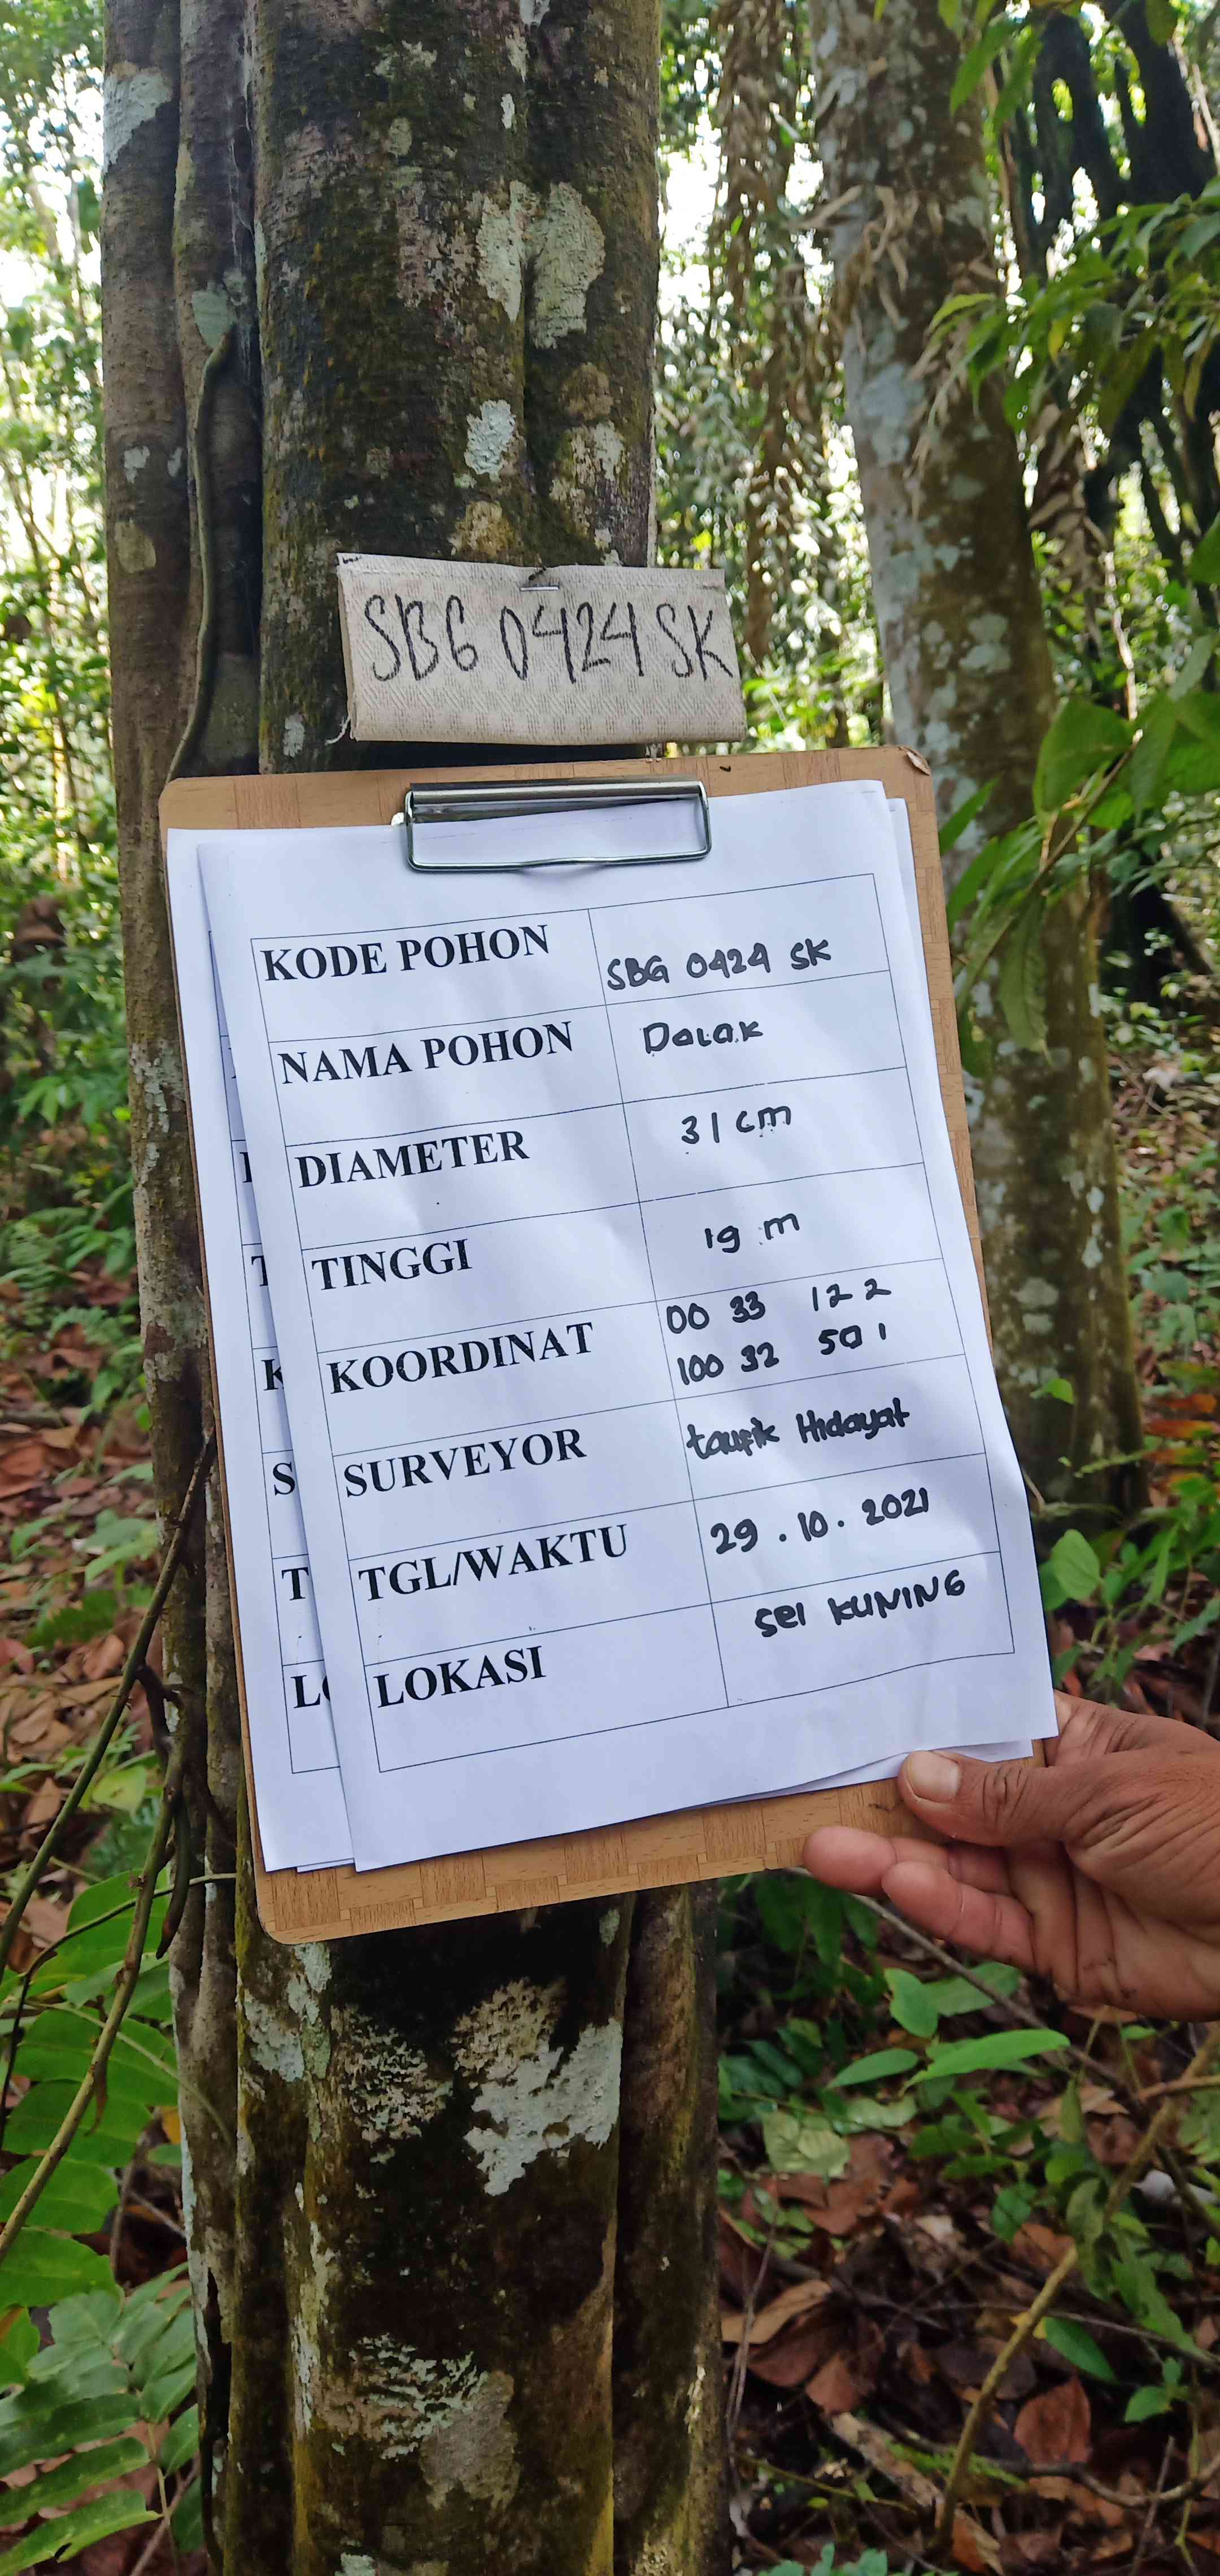 SBG 0424 SK
KODE POHON SBG 0424 SK
NAMA POHON Dalak
DIAMETER 31 cm
TINGGI 19 m
KOORDINAT 00 33 12 2
100 32 50 1
SURVEYOR taufik Hidayat
TGL/WAKTU 29 . 10 . 2021
LOKASI sei KUNING